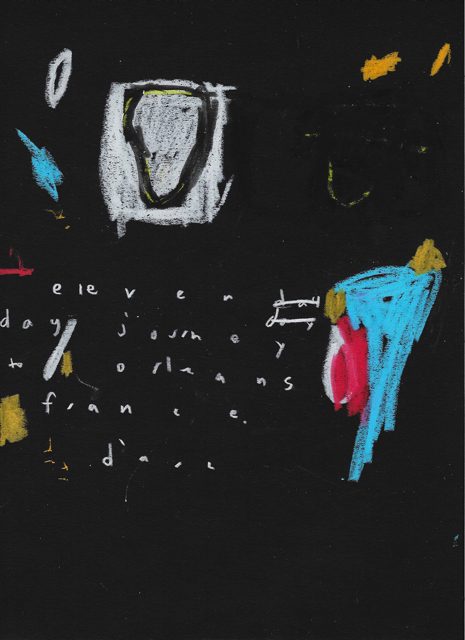 eleven day
day journey
to orleans
france.
d'arc